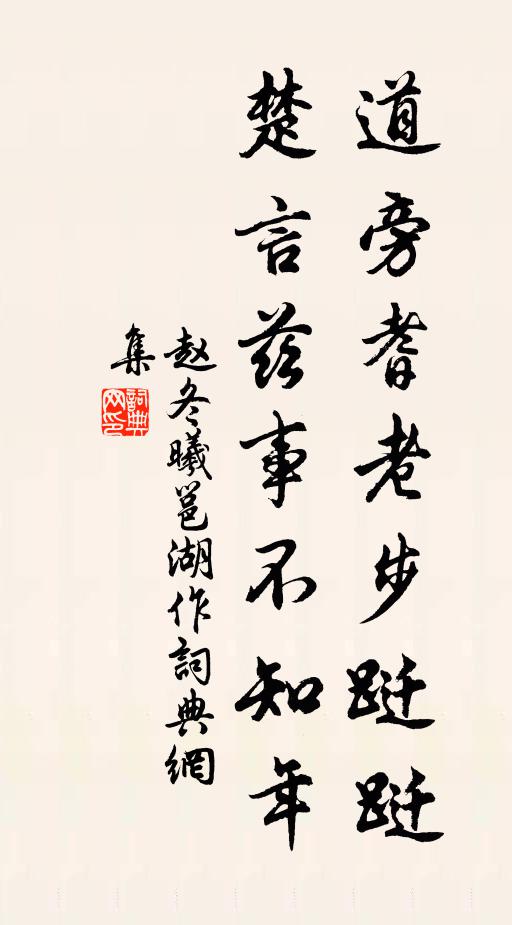 道旁耆老步跹跹
楚言兹事不知年
赵冬曦灉湖作詞典網
集
詞典
网印